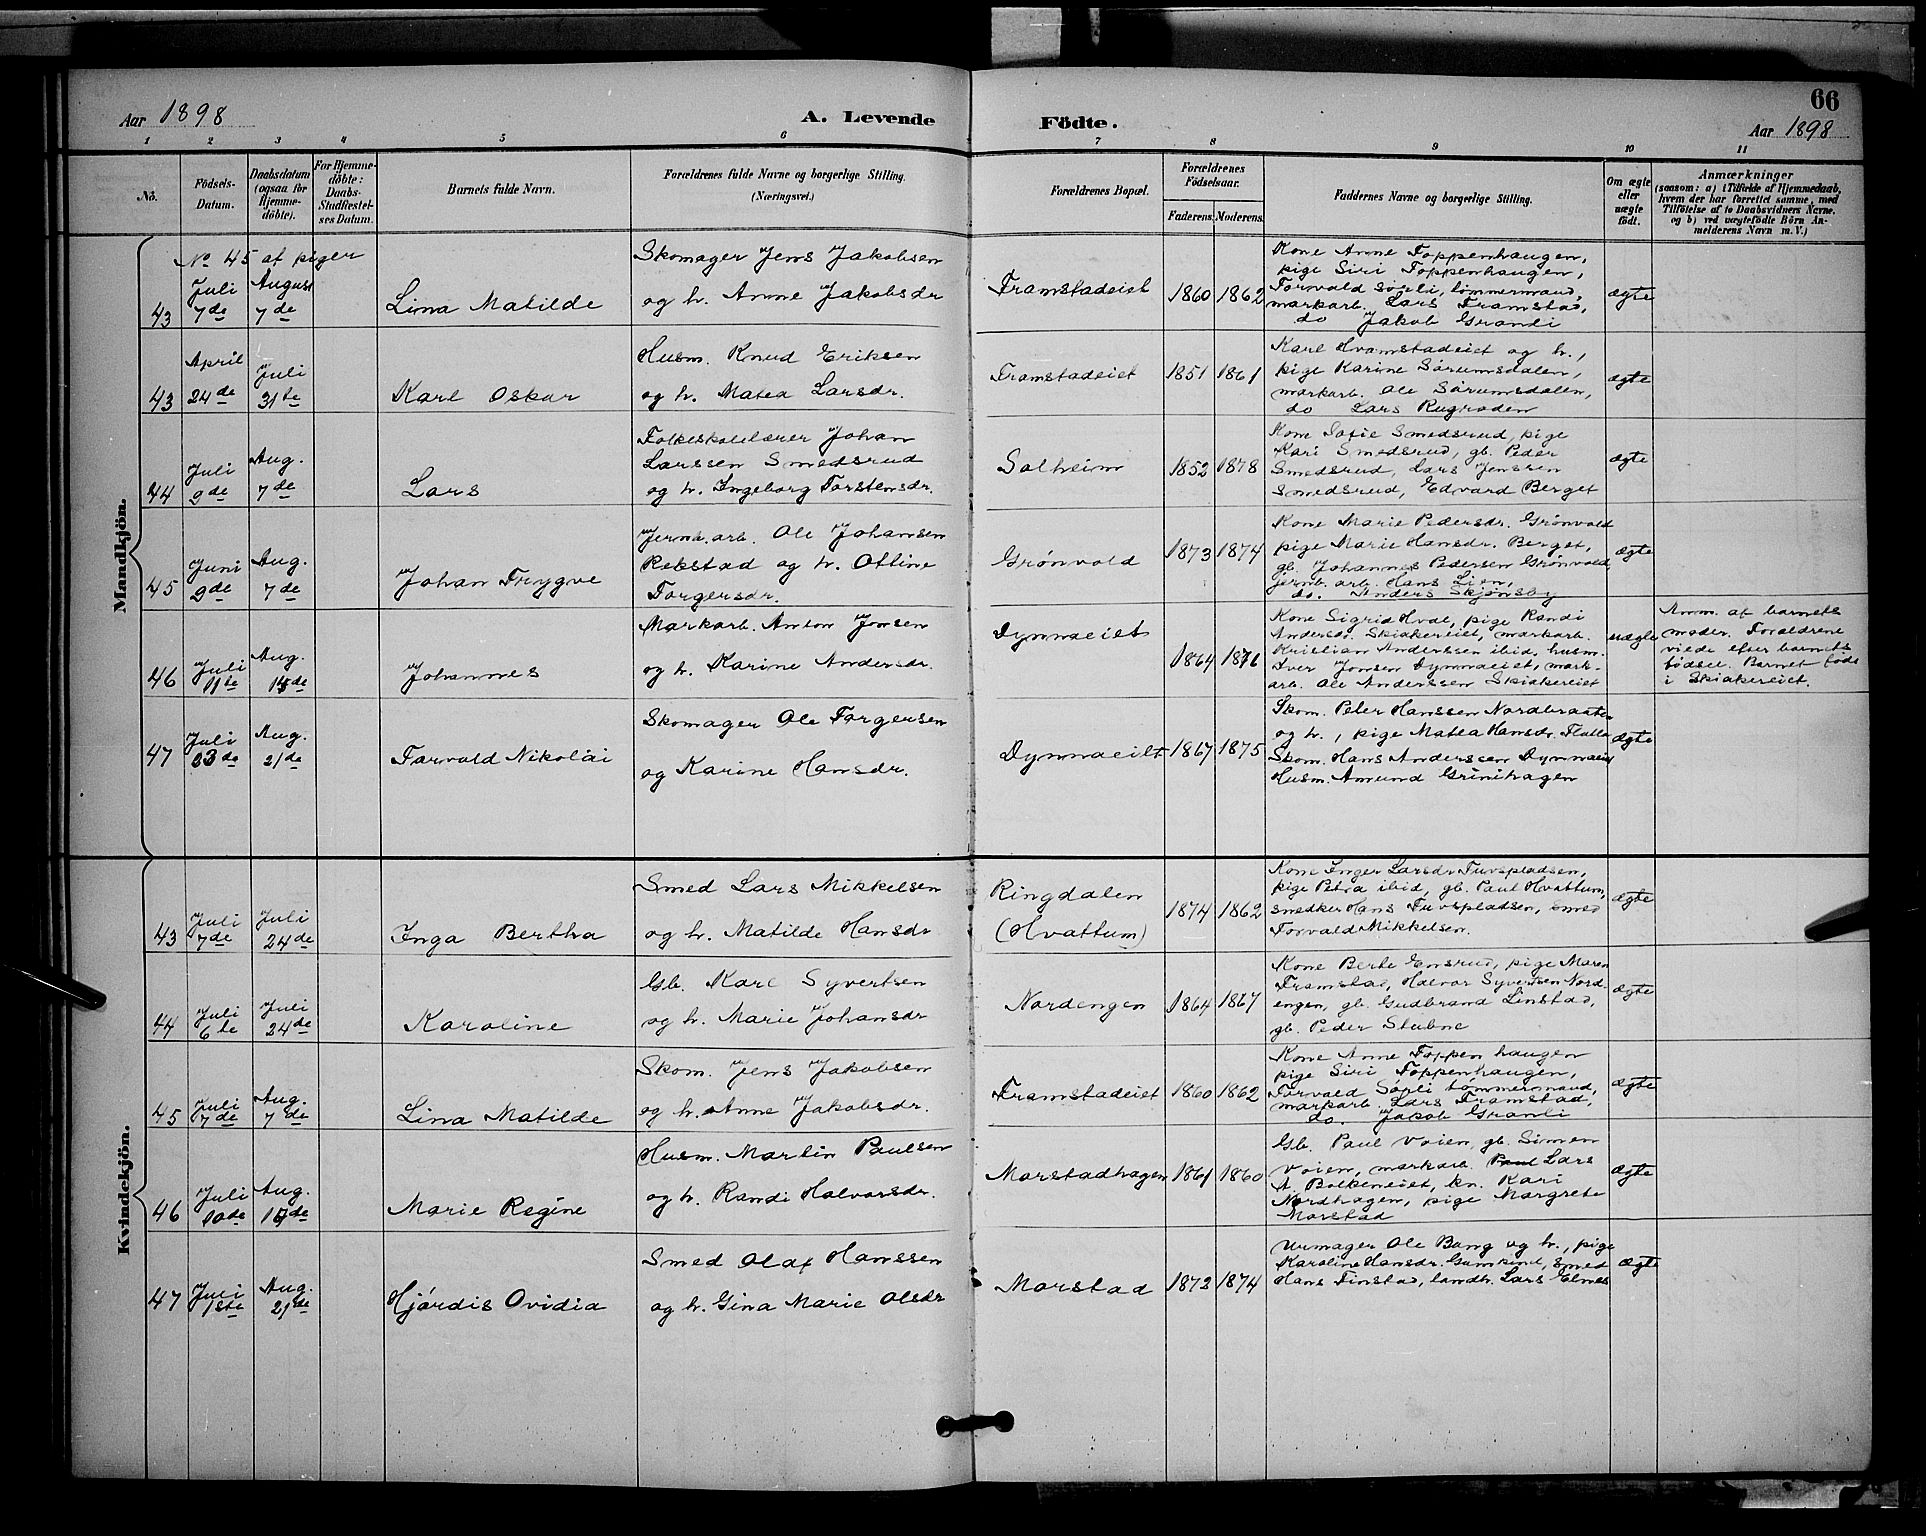 66
Aar 1898
A. Levende
Födte.
Aar 1898
1 2 3 4 5 6 7 8 9 10 11
No.
Födsels-
Datum.
Daabsdatum
(ogsaa for
Hjemme-
döbte).
For Hjemme-
döbte:
Daabs-
Stadfæstel-
ses Datum.
Barnets fulde Navn.
Forældrenes fulde Navne og borgerlige Stilling.
(Næringsvei.)
Forældrenes Bopæl.
Forældrenes
Födselsaar.
Faderens.
Moderens.
Faddernes Navne og borgerlige Stilling.
Om ægte
eller
uægte
födt.
Anmærkninger
(saasom: a) i Tilfælde af Hjemmedaab,
hvem der har forrettet samme, med
Tilföielse af to Daabsvidners Navne,
og b) ved uægtefödte Börn An-
melderens Navn m. V.)
Mandkjön.
No 45 af piger
43
Juli
7de
August
7de
Lina Matilde
Skomager Jens Jakobsen
og h. Anne Jakobsdr
Framstadeiet
1860
1862
Kone Anne Foppenhaugen,
pige Siri Foppenhaugen,
Torvald Sørli, tømmermand,
markarb. Lars Framstad,
do Jakob Granli
ægte
43
April
24de
Juli
31te
Karl Oskar
Husm. Knud Eriksen
og h. Matea Larsdr.
Framstadeiet
1851
1861
Karl Hvamstadeiet og h.,
pige Karine Sørumsdalen,
markarb. Ole Sørumsdalen,
do Lars Rugraden
ægte
44
Juli
9de
Aug.
7de
Lars
Folkeskolelærer Johan
Larssen Smedsrud
og h. Ingeborg Torstensdr.
Solheim
1852
1878
Kone Sofie Smedsrud, pige
Kari Smedsrud, gb. Peder
Smedsrud, Lars Jenssen
Smedsrud, Edvard Berget
ægte
45
Juni
9de
Aug.
7de
Johan Trygve
Jernb.arb. Ole Johansen
Rekstad og h. Otline
Torgersdr.
Grønvold
1873
1874
Kone Marie Pedersdr. Grønvold
pige Marie Hansdr. Berget,
gb. Johannes Pedersen Grønvold
jernb. arb. Hans Lien,
do. Anders Skjønsby
ægte
46
Juli
11te
Aug.
14de
Johannes
Markarb. Anton Jonsen
og h. Karine Andersdr.
Dynnaeiet
1864
1876
Kone Sigrid Hval, pige Randi
Andersdr. Skiakereiet, markarb.
Kristian Anderssen ibid, husm.
Iver Jonsen Dynnaeiet, mark-
arb. Ole Anderssen Skiakereiet
uægte
Anm. af barnets
moder. Foreldrene
viede efter barnets
fødsel. Barnet født
i Skiakereiet.
47
Juli
23de
Aug.
21de
Torvald Nikolai
Skomager Ole Torgersen
og Karine Hansdr.
Dynnaeiet
1867
1875
Skom. Peter Hanssen Nordbraaten
og h., pige Matea Hansdr. Flatla
Skom. Hans Anderssen Dynnaeiet
Husm. Amund Grinihagen
ægte
Kvindekjön.
43
Juli
7de
Juli
24de
Inga Bertha
Smed Lars Mikkelsen
og h. Matilde Hansdr
Ringdalen
(Hvattum)
1874
1862
Kone Inger Larsdr Tuvspladsen,
pige Petra ibid, gb. Paul Hvattum,
snedker Hans Tuvspladsen, smed
Torvald Mikkelsen.
ægte
44
Juli
6te
Juli
24de
Karoline
Gb. Karl Syvertsen
og h. Marie Johansdr
Nordengen
1864
1867
Kone Berte Ensrud, pige Maren
Framstad, Halvor Syvertsen Nord-
engen, gb. Gudbrand Linstad,
gb. Peder Stubne
ægte
45
Juli
7de
Aug.
7de
Lina Matilde
Skom. Jens Jakobsen
og h. Anne Jakobsdr.
Framstadeiet
1860
1862
Kone Anne Foppen haugen
pige Siri Foppenhaugen,
Torvald Sørli tømmermand,
markarb Lars Framstad,
do. Jakob Granli
ægte
46
Juli
10de
Aug.
14de
Marie Regine
Husm. Martin Paulsen
og h. Randi Halvorsdr.
Morstadhagen
1861
1860
Gb. Paul Voien, gb. Simen
Voien, markarb. Paul Lars
A. Bolkeneiet, kn. Kari
Nordhagen, pige Margrete
Morstad
ægte
47
Juli
1ste
Aug.
21de
Hjørdis Ovidia
Smed Olaf Hanssen
og h. Gina Marie Olsdr
Morstad
1873
1874
Urmager Ole Bang og h., pige
Karoline Hansdr. Gamkind, smed
Hans Finstad, landh. Lars Elnes
ægte